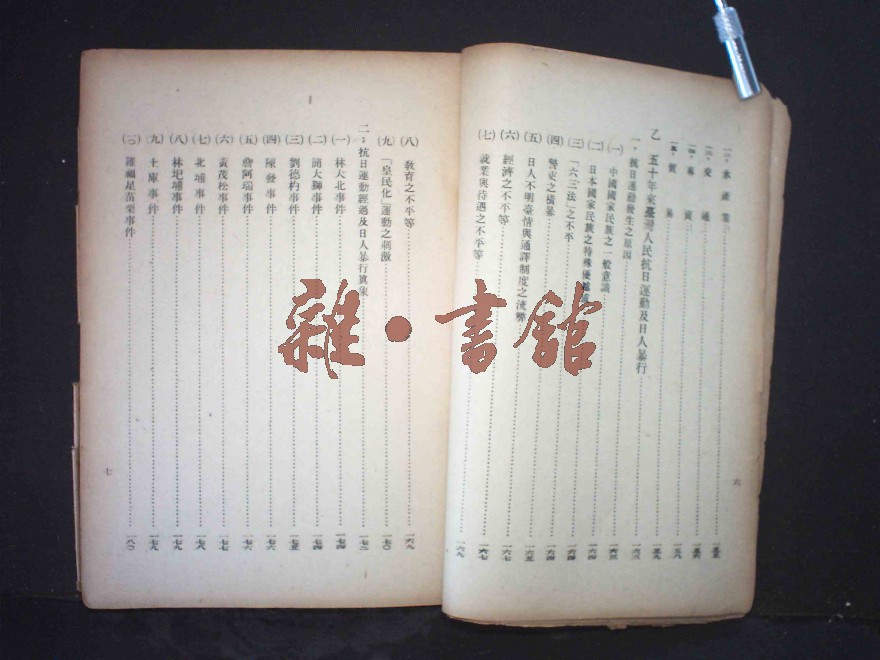 一三・水產業……一五五
一三・交通……一五五
一四・專賣……一五六
一五・貿易……一五八
乙 五十年來臺灣人民抗日運動及日人暴行……一五九
一・抗日運動發生之原因……一六三
(一)中國國家民族之一般意識……一六三
(二)日本國家民族之特殊優越感……一六四
(三)「六三法」之不平……一六四
(四)警吏之橫暴……一六四
(五)日人不明臺情與通譯制度之流弊……一六五
(六)經濟之不平等……一六七
(七)就業與待遇之不平等……一六七
六
(八)教育之不平等……一六九
(九)「皇民化」運動之刺激……一七〇
二・抗日運動經過及日人暴行真象……一七三
(一)林大北事件……一七四
(二)簡大獅事件……一七四
(三)劉德杓事件……一七五
(四)陳發事件……一七六
(五)詹阿瑞事件……一七六
(六)黃茂松事件……一七七
(七)北埔事件……一七八
(八)林圯埔事件……一七九
(九)土庫事件……一七九
(一〇)羅福星苗栗事件……一八〇
七
雜・書館